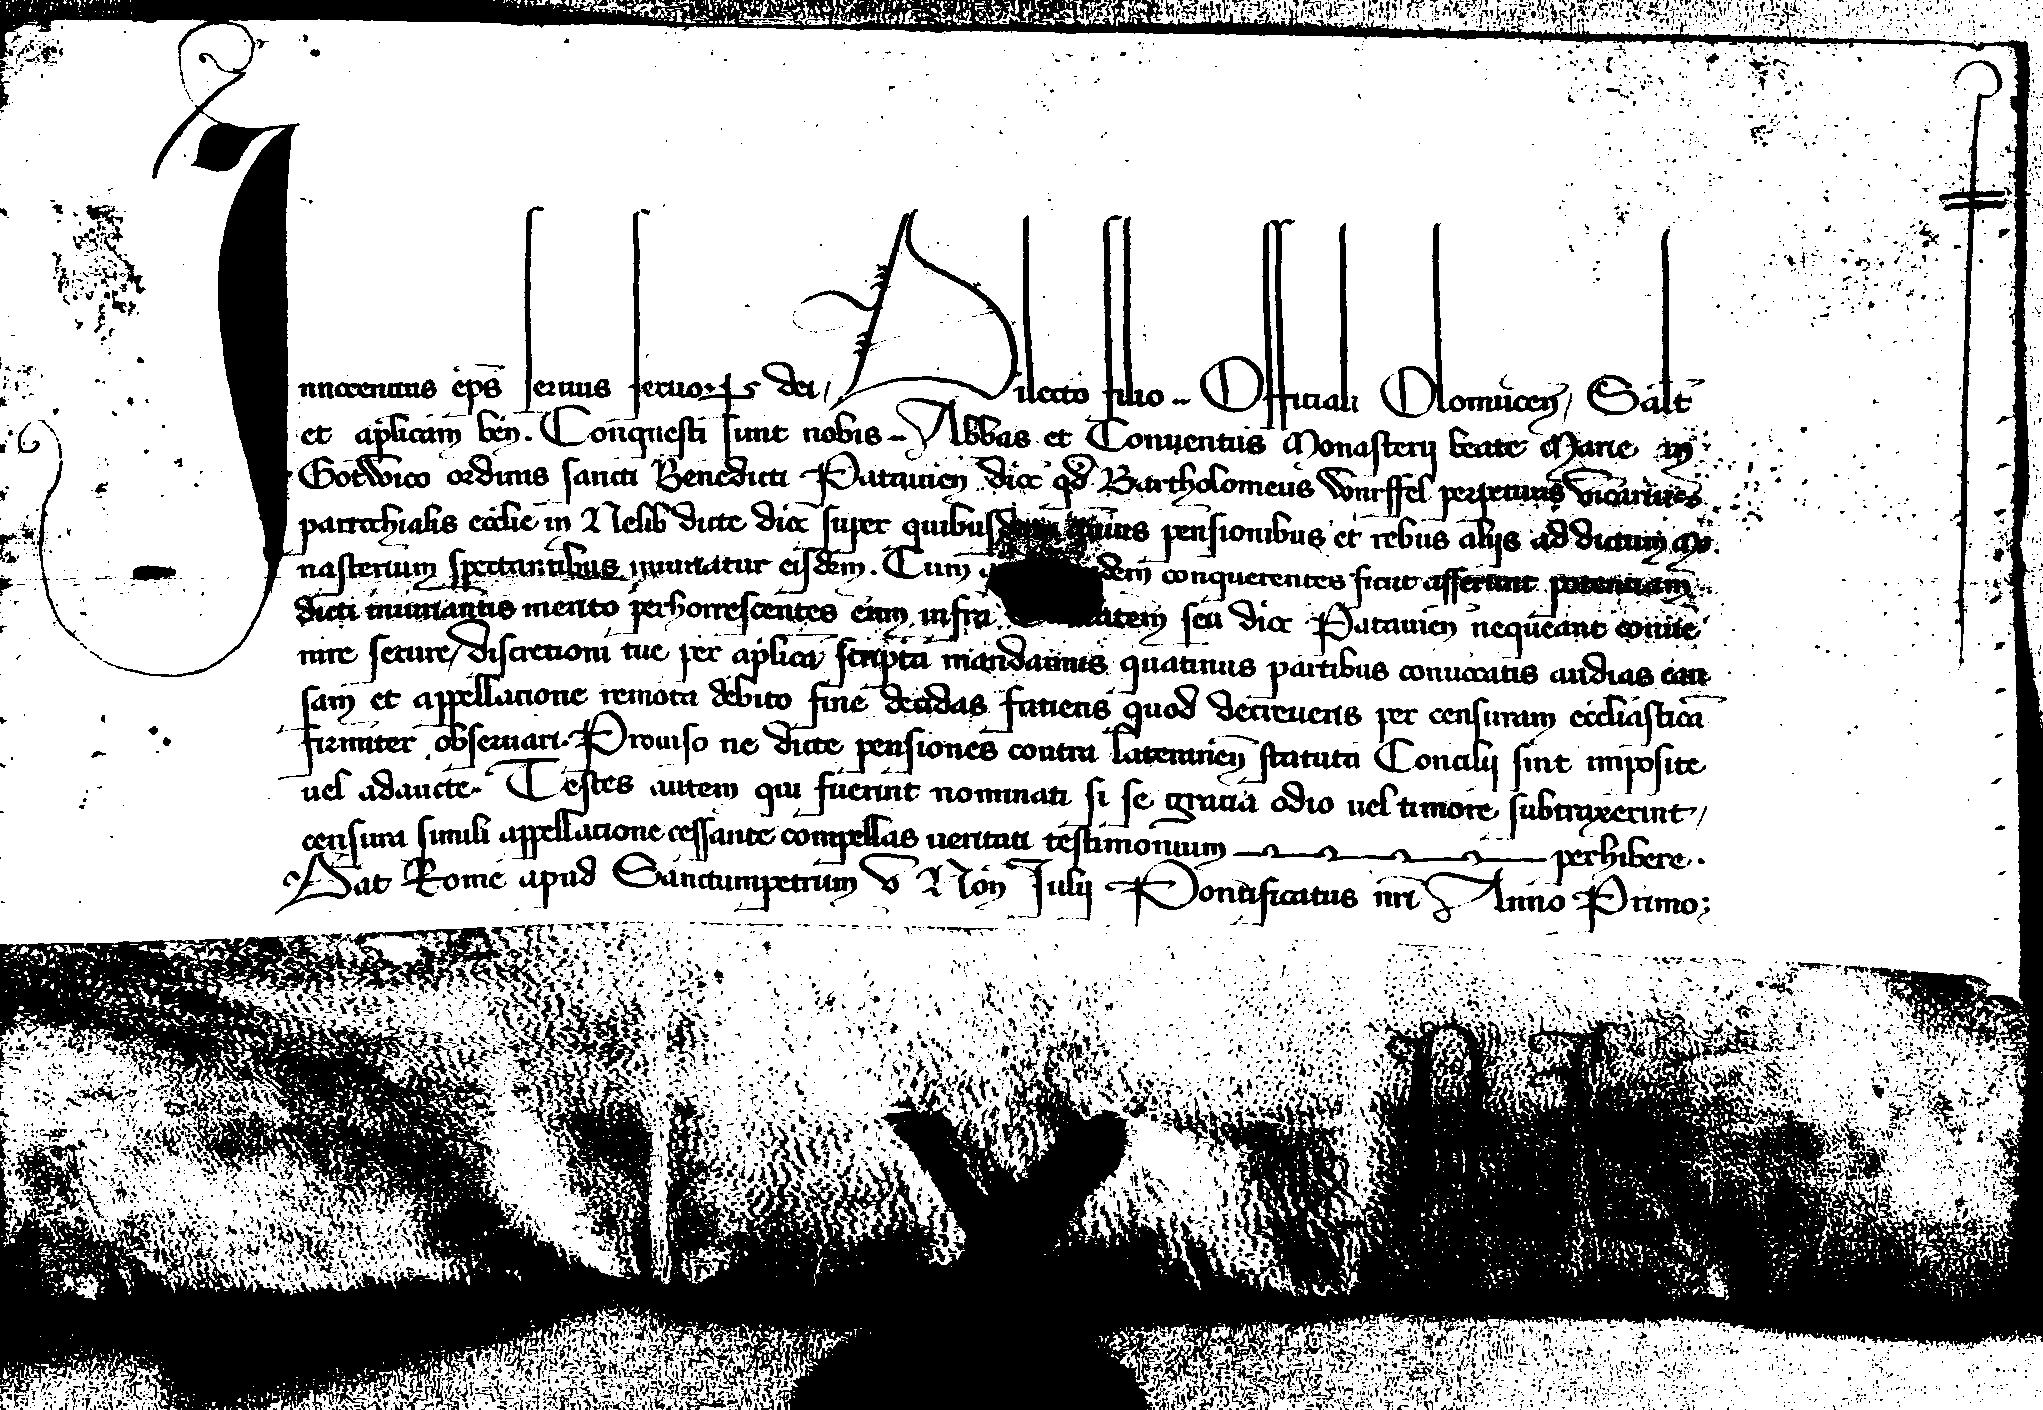 Innocentius ep̄s seruus seruoꝝ dei / Dilecto filio .. Officiali Olomucen̄ / Salt̄
et ap̄licam ben̄. Conquesti sunt nobis .. Abbas et Conuentus Monasterij beate Marie in
Gotwico ordinis sancti Benedicti Patauien̄ dioc̄ qd̄ Bartholomeus Wurffel perpetuus vicarius
parrochialis ecclie in Nelib dicte dioc̄ super pensionibus et rebus alijs ad dictum Mo
nasterium spectantibus iniuriatur eisdem. Cum conquerentes sicut asserunt potentiam
dicti iniuriantis merito perhorrescentes eum infra seu dioc̄ Patauien̄ nequeant conue
nire secure / discretioni tue per ap̄lica scripta mandamus quatinus partibus conuocatis audias cau
sam et appellatione remota debito fine decidas faciens quod decreueris per censuram ecclīasticā
firmiter obseruari. Prouiso ne dicte pensiones contra lateranen̄ statuta Concilij sint imposite
uel adaucte. Testes autem qui fuerint nominati si se gratia odio uel timore subtraxerint /
censura simili appellatione cessante compellas ueritati testimonium perhibere.
Dat Rome apud Sanctumpetrum v Non̄ Julij Pontificatus nr̄i Anno Primo;